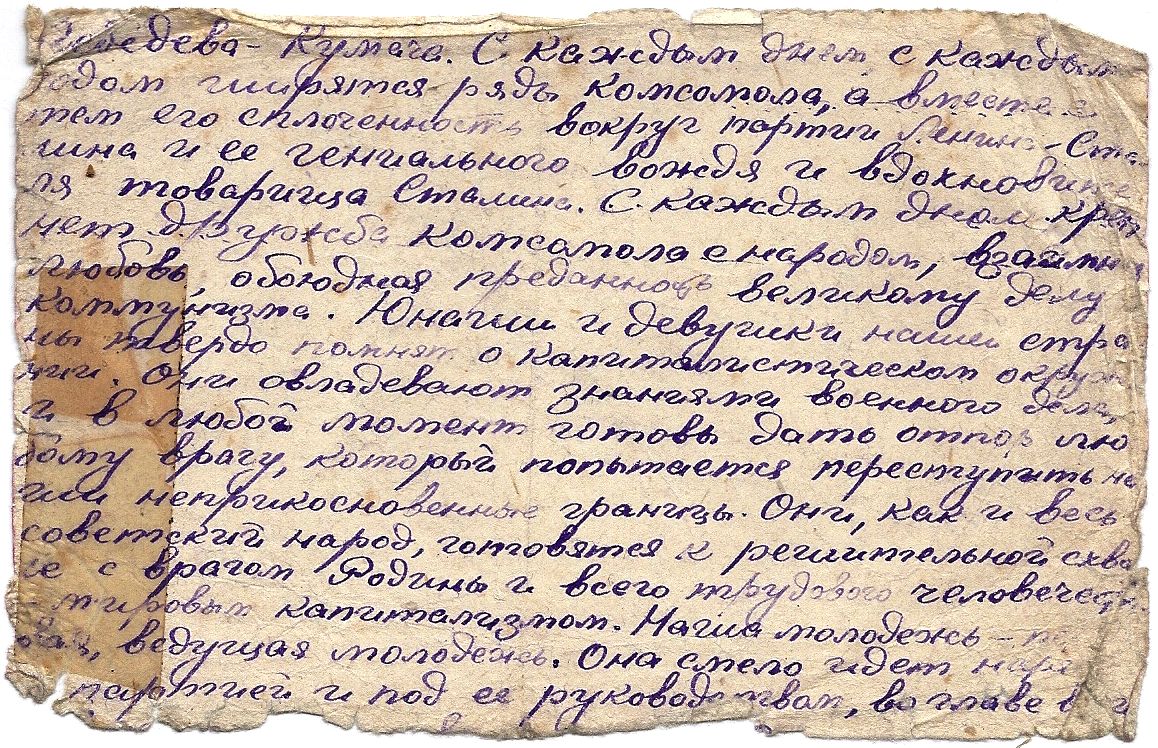 Лебедева-Кумача. С каждым днем, с каждым
годом ширятся ряды комсомола, а вместе с
тем его сплоченность вокруг партии Ленина-Ста-
лина и ее гениального вождя и вдохновите
ля товарища Сталина. С каждым днем креп
нет дружба комсомола с народом, взаимная
любовь, обоюдная преданность великому делу
коммунизма. Юнаши и девушки нашей стра
ны твердо помнят о капиталистическом окруж
нии. Они овладевают знаниями военного дела,
и в любой момент готовы дать отпор лю
бому врагу, который попытается переступить на
ши неприкосновенные границы. Они, как и весь
советский народ, готовятся к решительной схва
ке с врагом Родины и всего трудового человечест
- мировым капитализмом. Наша молодежь -
ведущая молодежь. Она смело идет
партией и под ее руководством, во главе